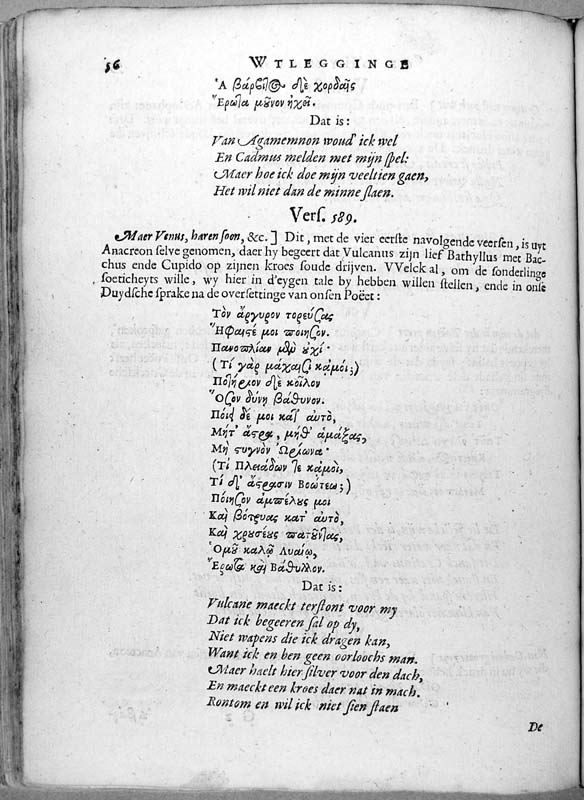 56 WTLEGGINGE
Ἁ βάρβιτος δὲ χορδαῖς
Ἔρωτα μοῦνον ἠχοῖ.
Dat is:
Van Agamemnon woud' ick wel
En Cadmus melden met mijn spel:
Maer hoe ick doe mijn veeltien gaen,
Het wil niet dan de minne slaen.
Vers. 589.
Maer Venus, haren soon, &c.] Dit, met de vier eerste navolgende veersen, is uyt
Anacreon selve genomen, daer hy begeert dat Vulcanus zijn lief Bathyllus met Bac-
chus ende Cupido op zijnen kroes soude drijven. VVelck al, om de sonderlinge
soeticheyts wille, wy hier in d'eygen tale by hebben willen stellen, ende in onse
Duydsche sprake na de oversettinge van onsen Poëet:
Τὸν ἄργυρον τορεύσας
Ἥφαιστέ μοι ποίησον.
Πανοπλίαν μὲν οὐχί·
(Τί γὰρ μάχαισι κἀμοί;)
Ποτήριον δὲ κοῖλον
Ὅσον δύνῃ βάθυνον.
Ποίει δέ μοι κατ' αὐτὸ,
Μήτ' ἄστρα, μήθ' ἁμάξας,
Μὴ στυγνὸν Ὠρίωνα·
(Τί Πλειάδων τε κἀμοὶ,
Τί δ' ἄστρασιν Βοώτεω;)
Ποίησον ἀμπέλους μοι
Καὶ βότρυας κατ' αὐτὸ,
Καὶ χρυσέους πατοῦντας,
Ὁμοῦ καλῷ Λυαίῳ,
Ἔρωτα καὶ Βάθυλλον.
Dat is:
Vulcane maeckt terstont voor my
Dat ick begeeren sal op dy,
Niet wapens die ick dragen kan,
Want ick en ben geen oorloochs man.
Maer haelt hier silver voor den dach,
En maeckt een kroes daer nat in mach.
Rontom en wil ick niet sien staen
De